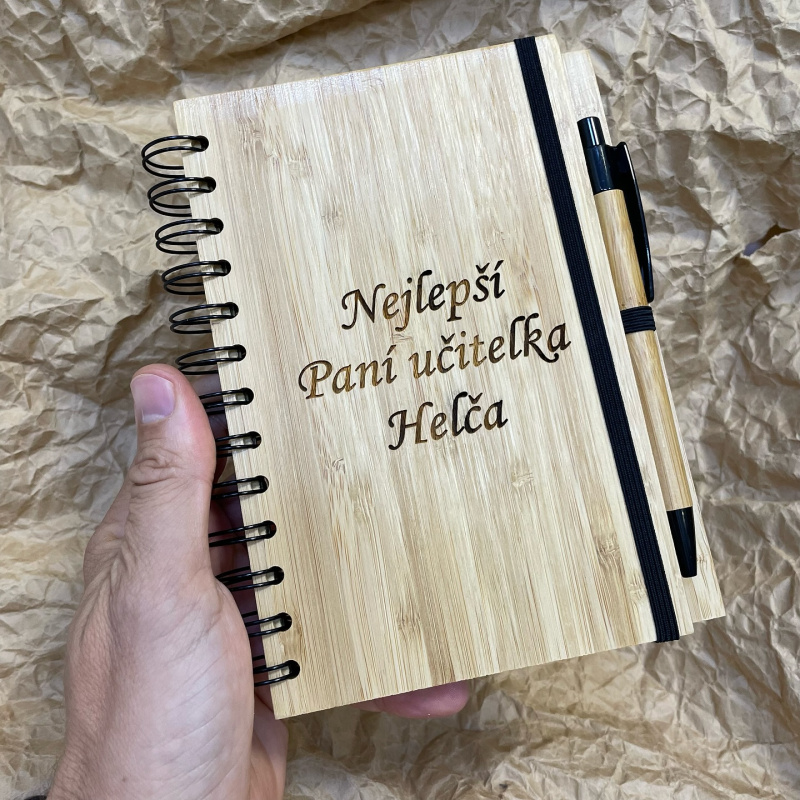 Nejlepší
Paní učitelka
Helča